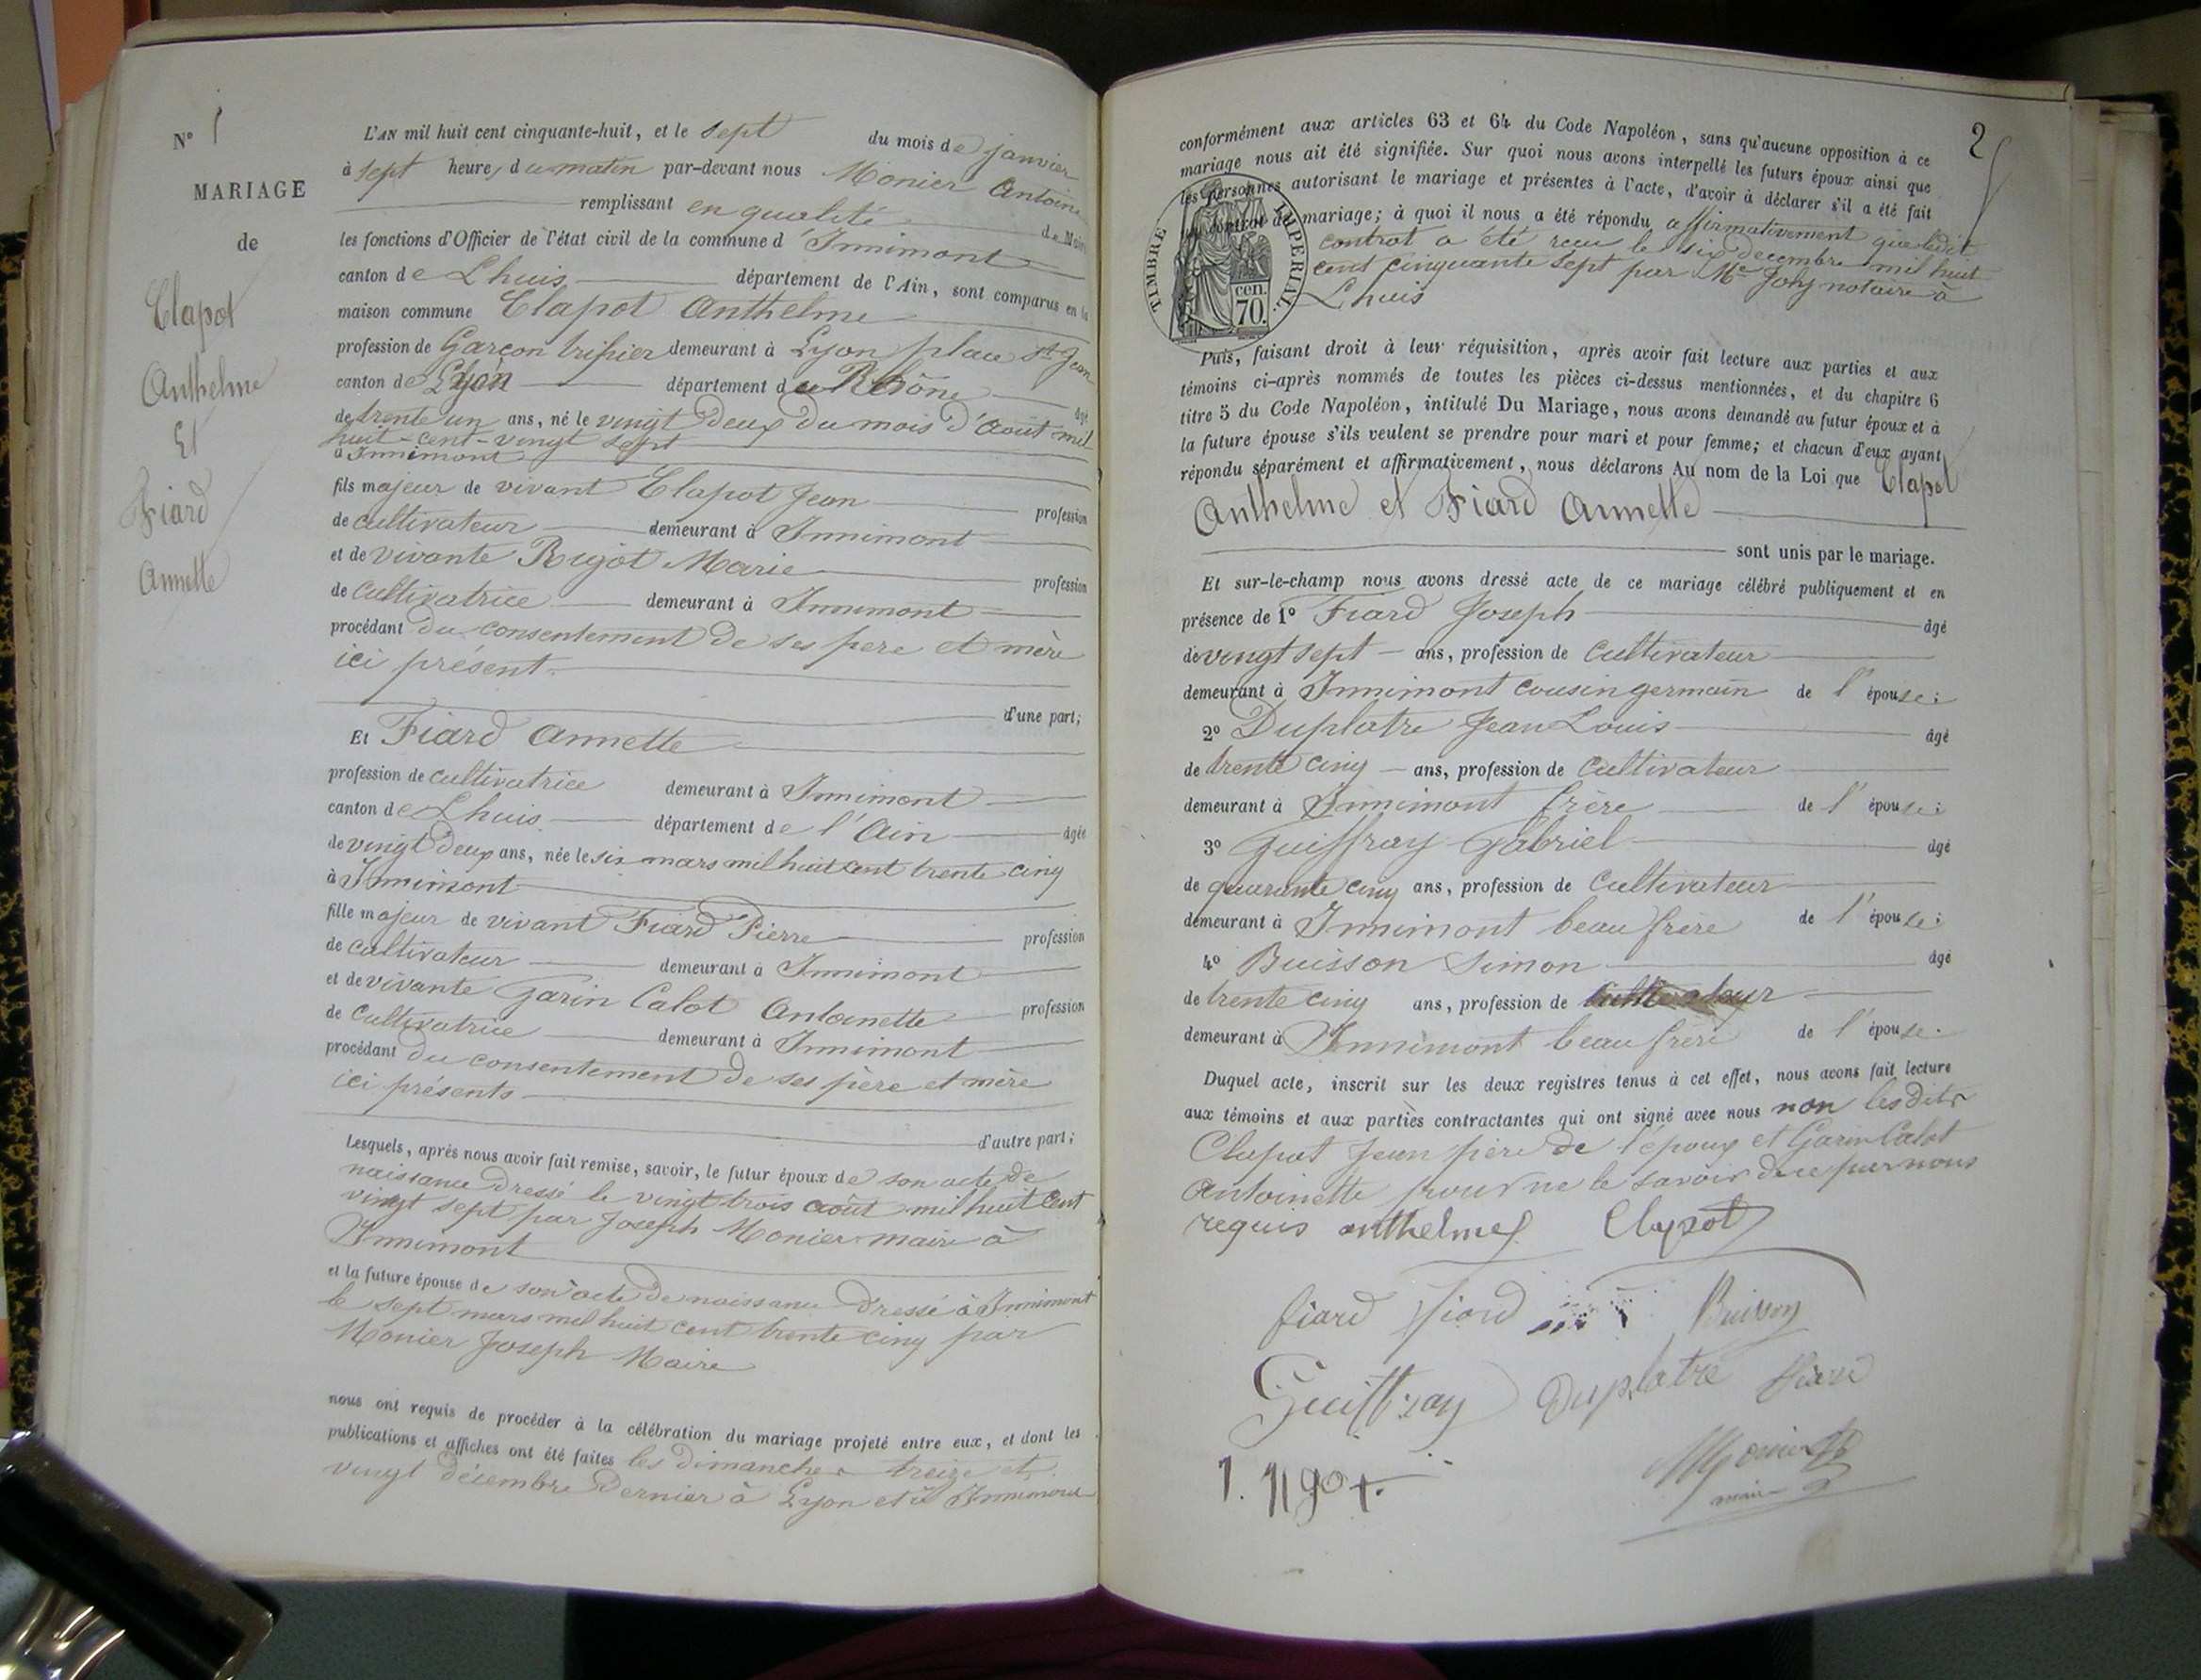 N° 1
MARIAGE
de
Clapot
Anthelme
Et
Fiard
Annette
L'AN mil huit cent cinquante-huit, et le sept du mois de janvier
à sept heures du matin par-devant nous Monier Antoine
remplissant en qualité de Maire
les fonctions d'Officier de l'état civil de la commune d'Innimont
canton de Lhuis département de l'Ain, sont comparus en la
maison commune Clapot Anthelme
profession de Garçon tripier demeurant à Lyon place St Jean
canton de Lyon département du Rhône âgé
de trente un ans, né le vingt deux du mois d'Août mil
huit-cent-vingt sept
à Innimont
fils majeur de vivant Clapot Jean profession
de cultivateur demeurant à Innimont
et de vivante Rigot Marie profession
de Cultivatrice demeurant à Innimont
procédant du consentement de ses père et mère
ici présent
d'une part;
Et Fiard Annette
profession de cultivatrice demeurant à Innimont
canton de Lhuis département de l'Ain âgée
de vingt deux ans, née le six mars mil huit cent trente cinq
à Innimont
fille majeur de vivant Fiard Pierre profession
de cultivateur demeurant à Innimont
et de vivante Garin Calot Antoinette profession
de Cultivatrice demeurant à Innimont
procédant du consentement de ses père et mère
ici présents
d'autre part;
Lesquels, après nous avoir fait remise, savoir, le futur époux de son acte de
naissance dressé le vingt trois août mil huit cent
vingt sept par Joseph Monier maire à
Innimont
et la future épouse de son acte de naissance dressé à Innimont
le sept mars mil huit cent trente cinq par
Monier Joseph Maire
nous ont requis de procéder à la célébration du mariage projeté entre eux, et dont les
publications et affiches ont été faites les dimanches treize et
vingt décembre dernier à Lyon et à Innimont
2
conformément aux articles 63 et 64 du Code Napoléon, sans qu'aucune opposition à ce
mariage nous ait été signifiée. Sur quoi nous avons interpellé les futurs époux ainsi que
les personnes autorisant le mariage et présentes à l'acte, d'avoir à déclarer s'il a été fait
un contrat de mariage; à quoi il nous a été répondu affirmativement que ledit
contrat a été reçu le six decembre mil huit
cent cinquante sept par Me Joly notaire à
Lhuis
TIMBRE IMPERIAL
70. cen.
Puis, faisant droit à leur réquisition, après avoir fait lecture aux parties et aux
témoins ci-après nommés de toutes les pièces ci-dessus mentionnées, et du chapitre 6
titre 5 du Code Napoléon, intitulé Du Mariage, nous avons demandé au futur époux et à
la future épouse s'ils veulent se prendre pour mari et pour femme; et chacun d'eux ayant
répondu séparément et affirmativement, nous déclarons Au nom de la Loi que Clapot
Anthelme et Fiard Annette
sont unis par le mariage.
Et sur-le-champ nous avons dressé acte de ce mariage célébré publiquement et en
présence de 1° Fiard Joseph âgé
de vingt sept ans, profession de Cultivateur
demeurant à Innimont cousin germain de l'épouse;
2° Duplatre Jean Louis âgé
de trente cinq ans, profession de Cultivateur
demeurant à Innimont frère de l'épouse;
3° Guiffray Gabriel âgé
de quarante cinq ans, profession de Cultivateur
demeurant à Innimont beau frère de l'épouse;
4° Buisson Simon âgé
de trente cinq ans, profession de Cultivateur
demeurant à Innimont beau frère de l'épouse.
Duquel acte, inscrit sur les deux registres tenus à cet effet, nous avons fait lecture
aux témoins et aux parties contractantes qui ont signé avec nous non lesdits
Clapot Jean père de l'époux et Garin Calot
Antoinette pour ne le savoir de ce par nous
requis anthelme Clapot
fiard fiard Buisson
Guiffray Duplatre fiard
Monier
maire